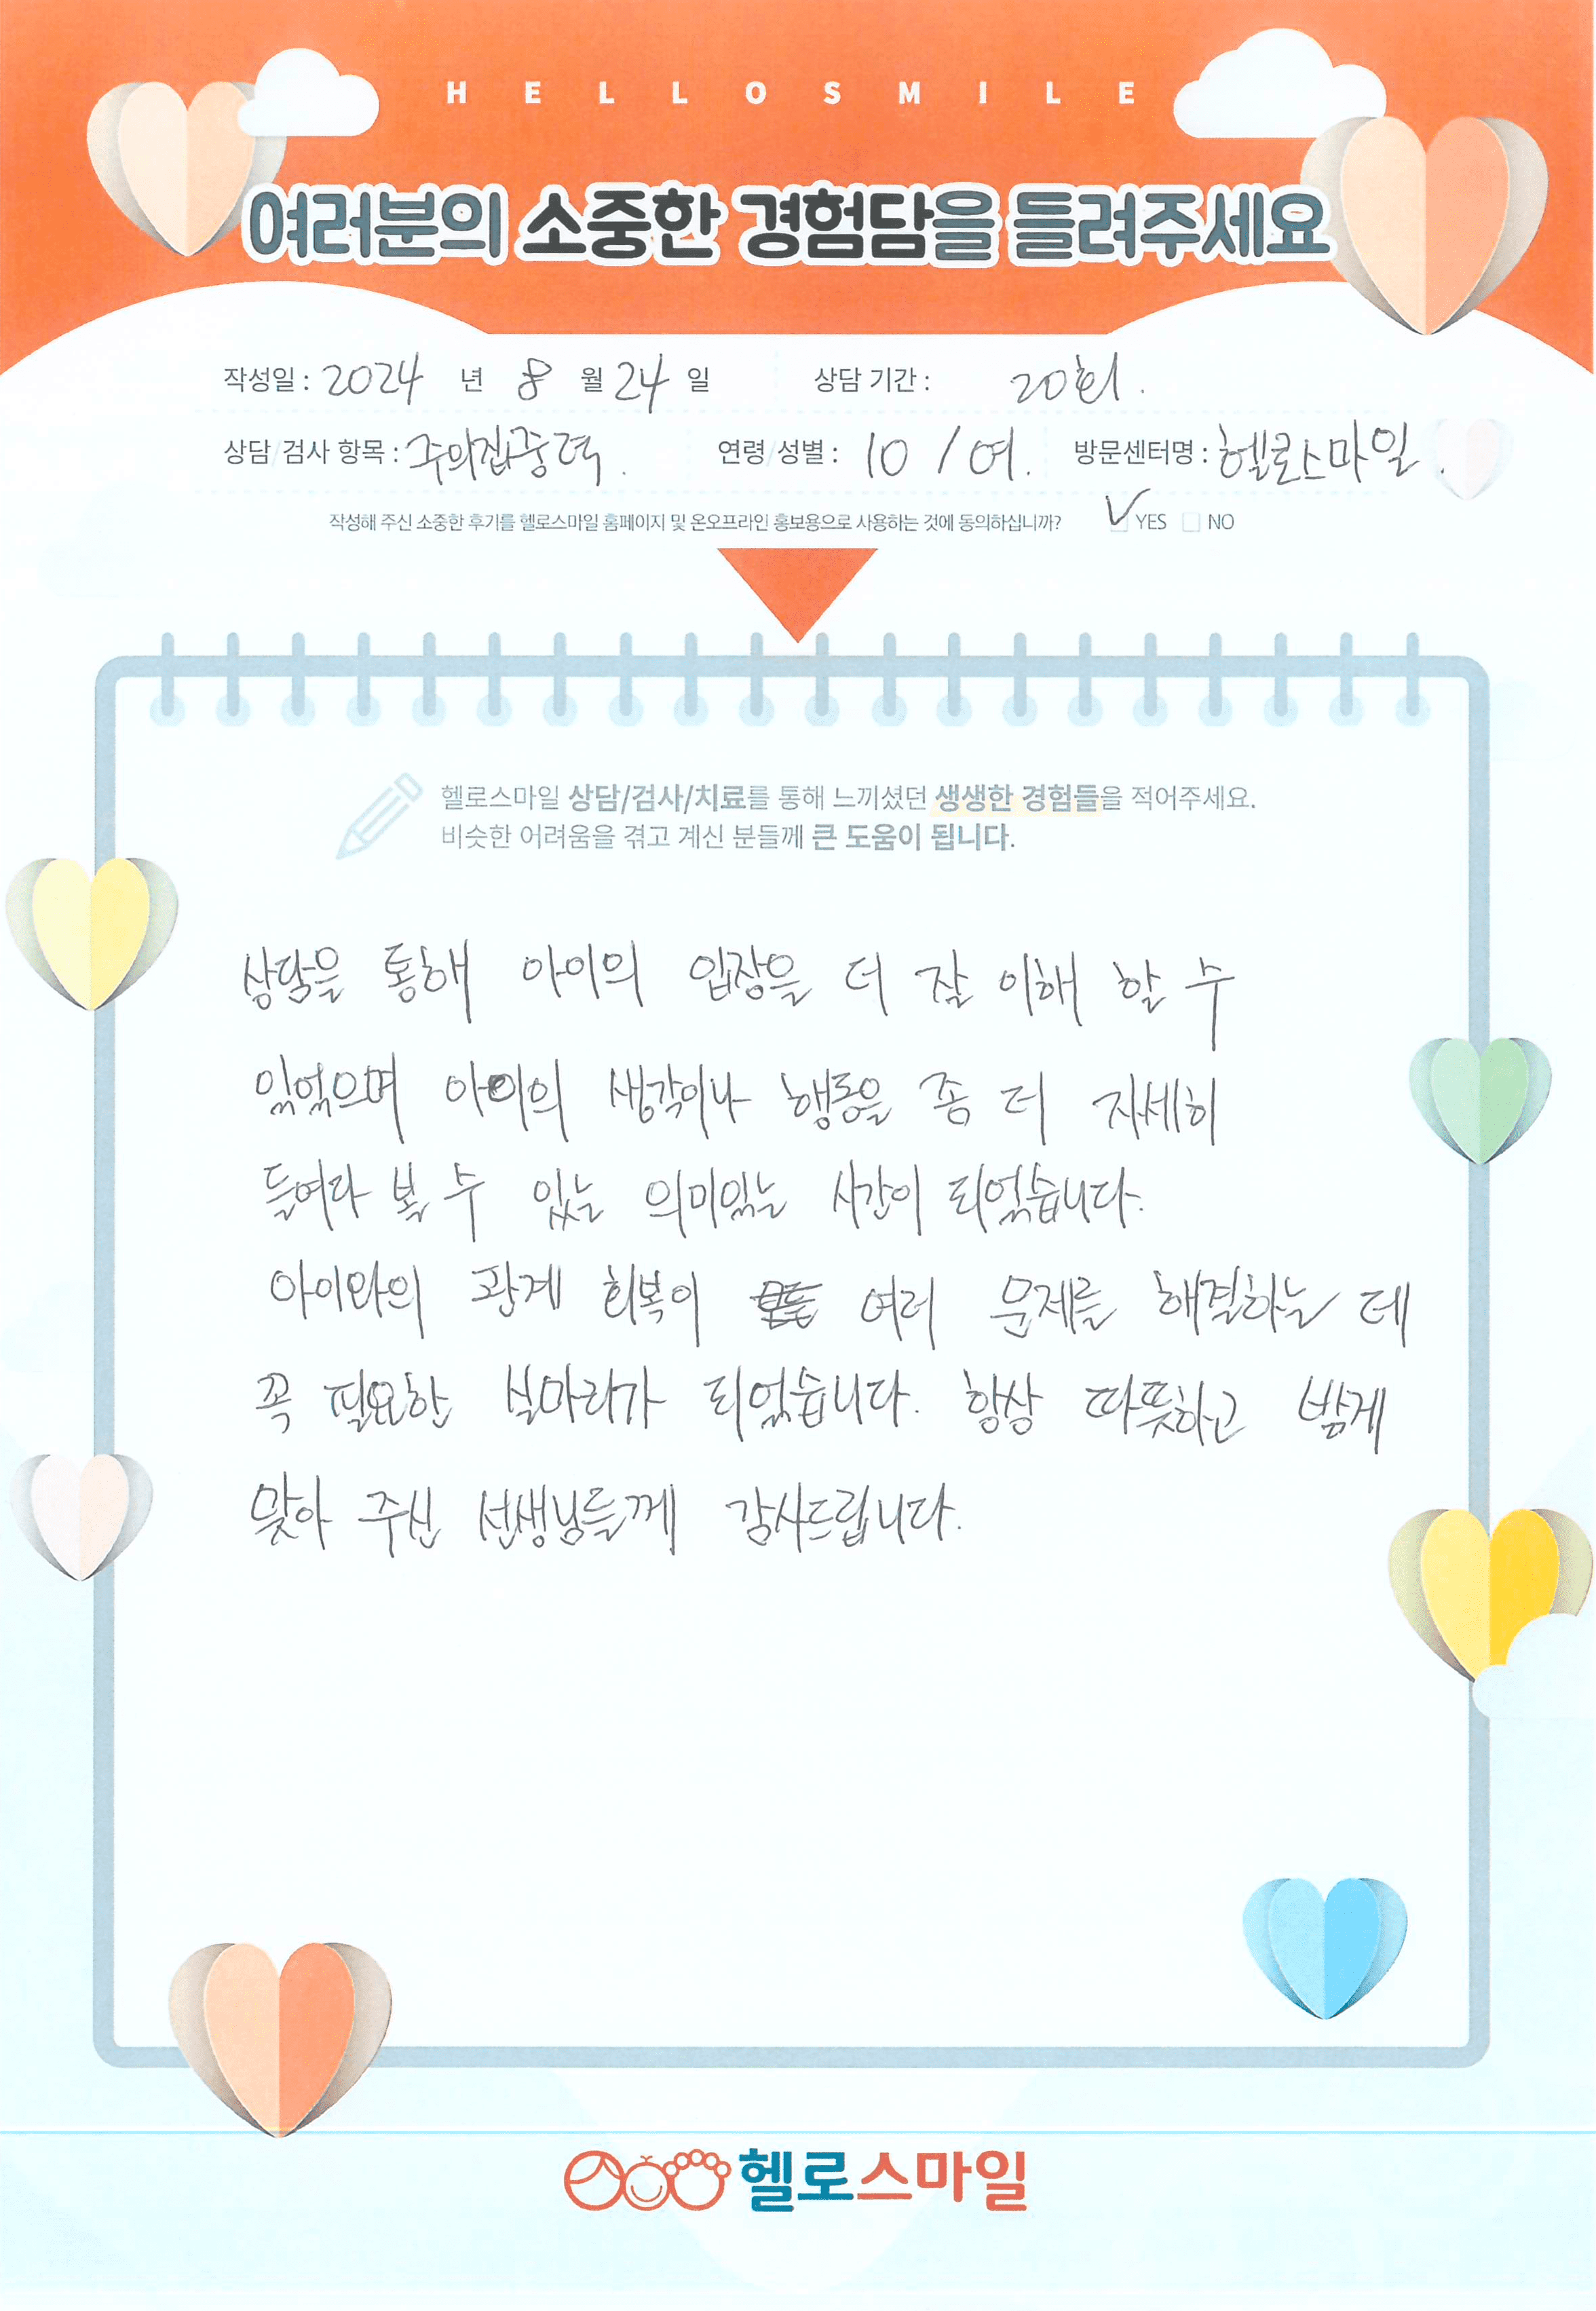 HELLOSMILE
여러분의 소중한 경험담을 들려주세요
작성일 : 2024 년 8 월 24 일 상담 기간 : 20회.
상담/검사 항목 : 주의집중력. 연령/성별 : 10 / 여. 방문센터명 : 헬로스마일.
작성해 주신 소중한 후기를 헬로스마일 홈페이지 및 온오프라인 홍보용으로 사용하는 것에 동의하십니까? ✓ YES □ NO
헬로스마일 상담/검사/치료를 통해 느끼셨던 생생한 경험들을 적어주세요.
비슷한 어려움을 겪고 계신 분들께 큰 도움이 됩니다.
상담을 통해 아이의 입장을 더 잘 이해 할 수
있었으며 아이의 생각이나 행동을 좀 더 자세히
들여다 볼 수 있는 의미있는 시간이 되었습니다.
아이와의 관계 회복이 여러 문제를 해결하는 데
꼭 필요한 실마리가 되었습니다. 항상 따뜻하고 밝게
맞아 주신 선생님들께 감사드립니다.
헬로스마일